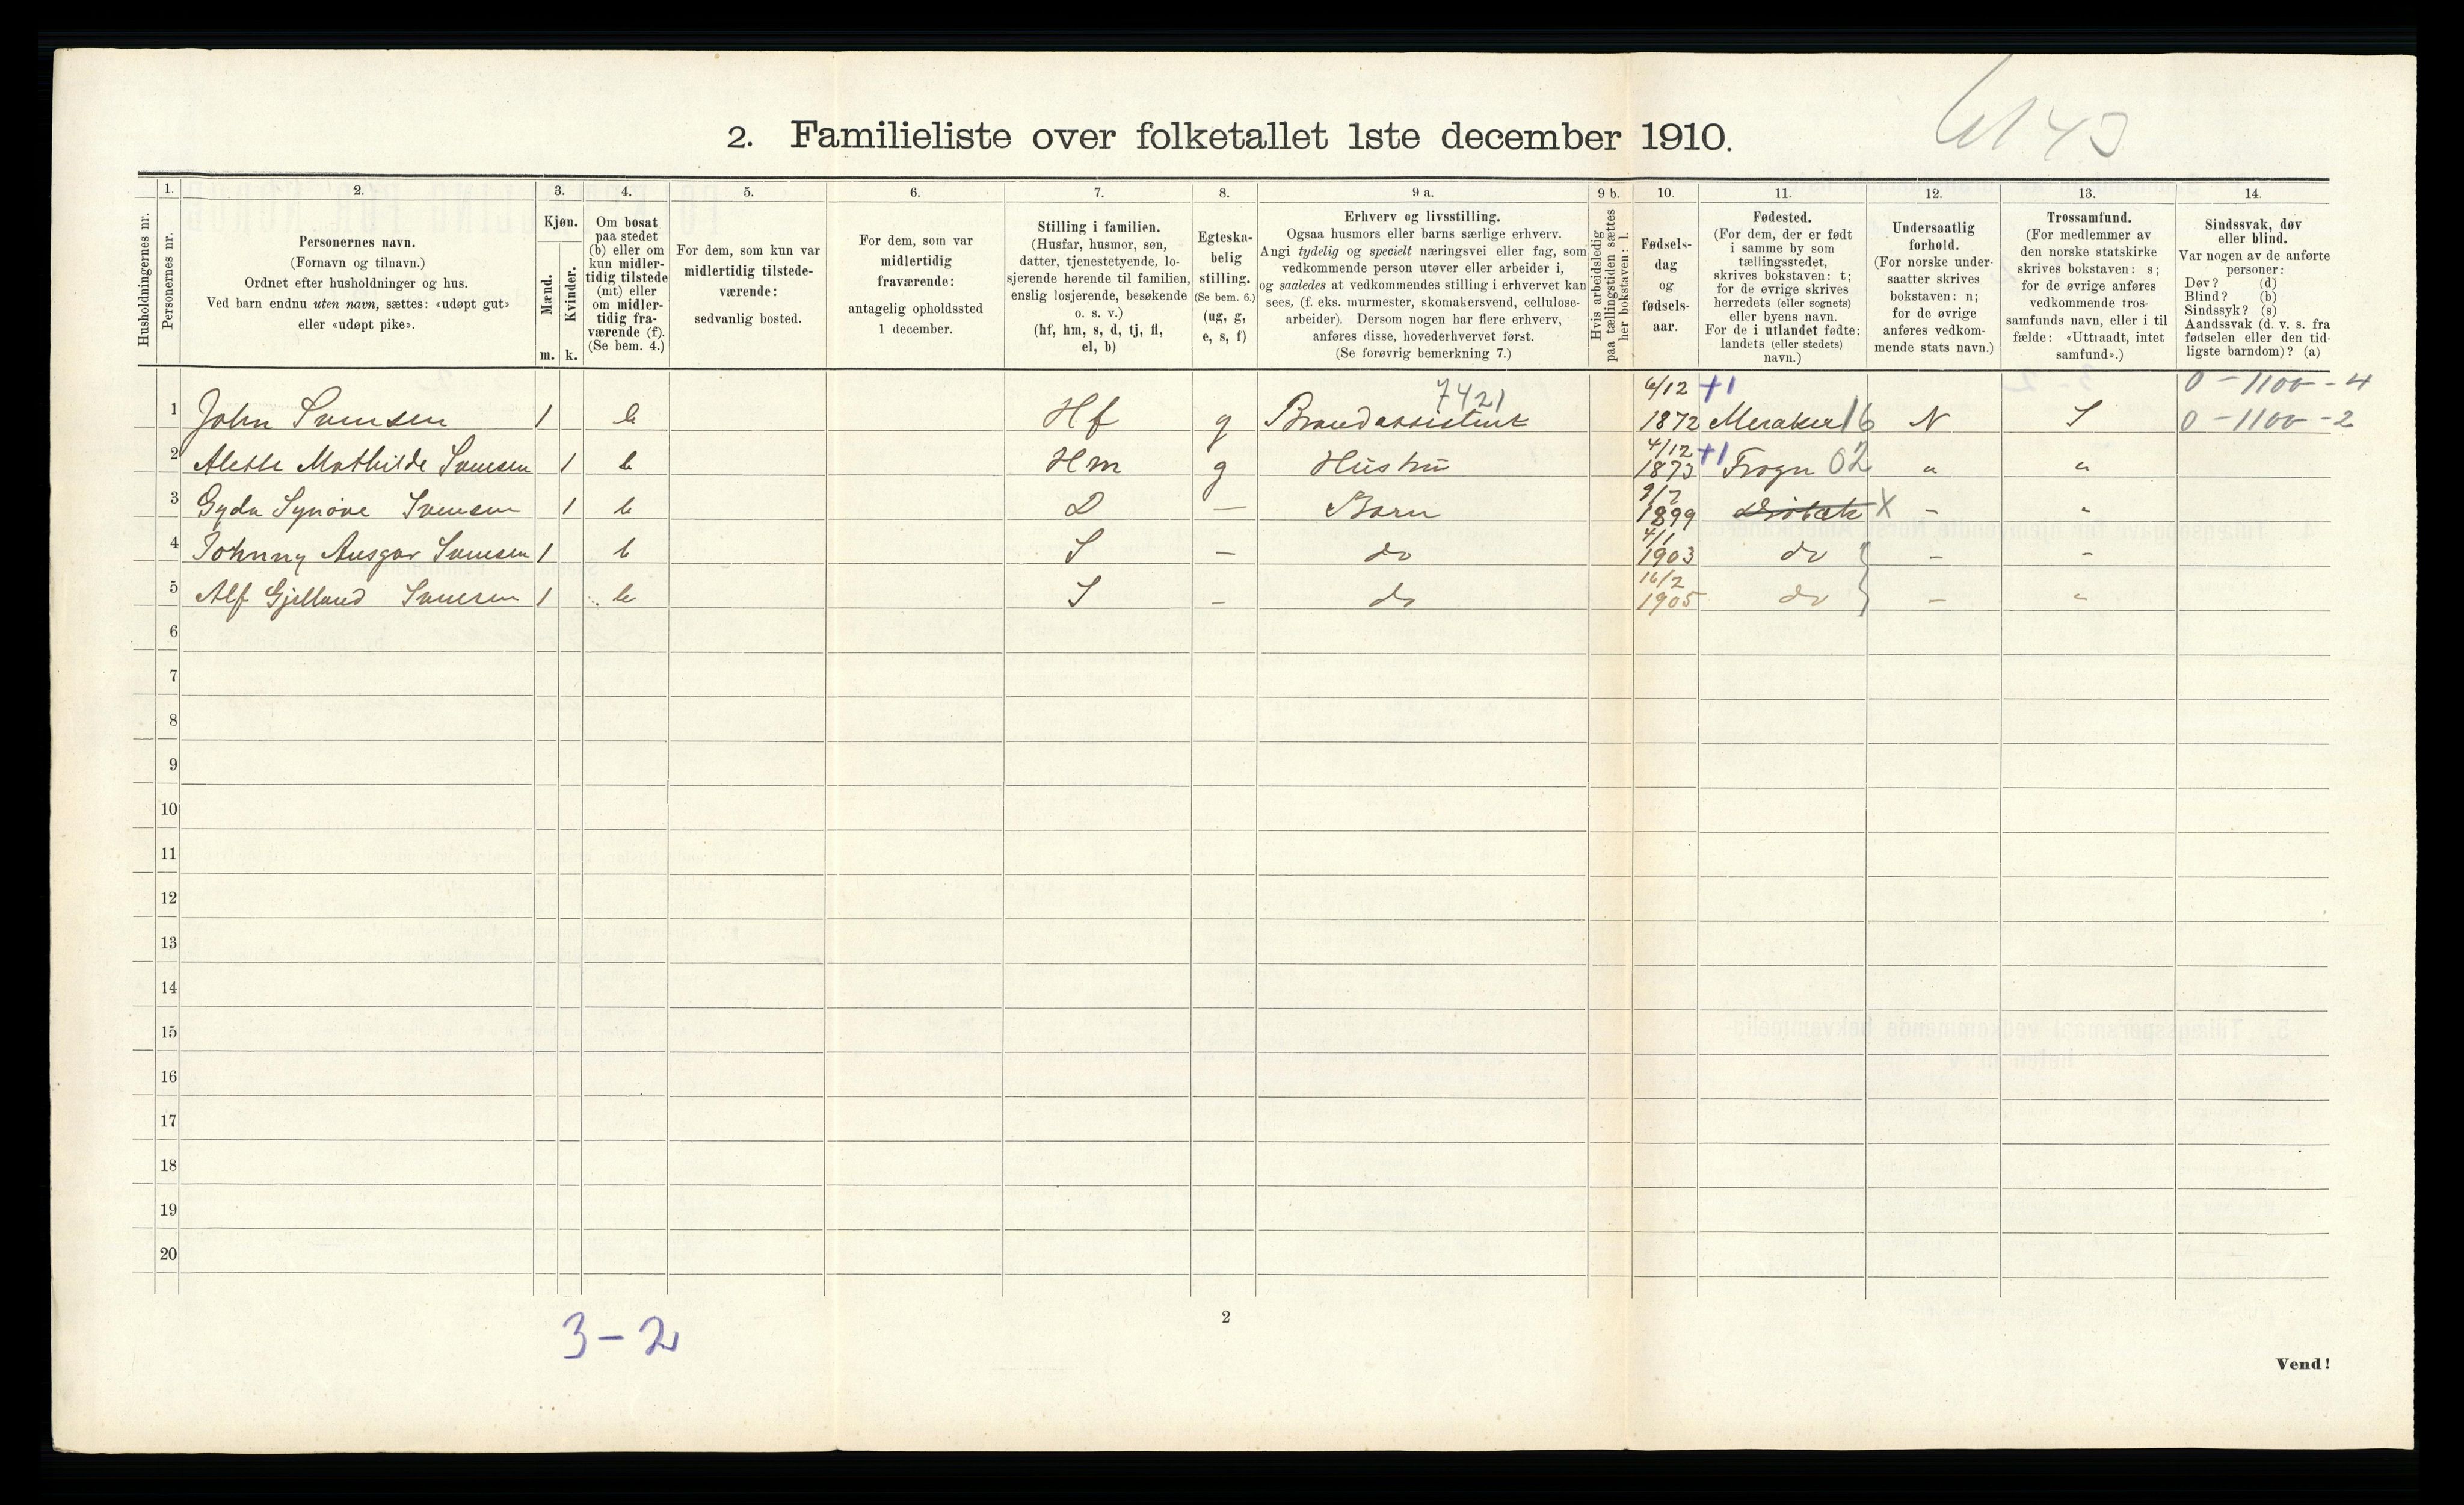 6143
2. Familieliste over folketallet 1ste december 1910.
Husholdningernes nr.
1.
Personernes nr.
2.
Personernes navn.
(Fornavn og tilnavn.)
Ordnet efter husholdninger og hus.
Ved barn endnu uten navn, sættes: «udøpt gut»
eller «udøpt pike».
3.
Kjøn.
Mænd.
Kvinder.
m. k.
4.
Om bosat
paa stedet
(b) eller om
kun midler-
tidig tilstede
(mt) eller
om midler-
tidig fra-
værende (f).
(Se bem. 4.)
5.
For dem, som kun var
midlertidig tilstede-
værende:
sedvanlig bosted.
6.
For dem, som var
midlertidig
fraværende:
antagelig opholdssted
1 december.
7.
Stilling i familien.
(Husfar, husmor, søn,
datter, tjenestetyende, lo-
sjerende hørende til familien,
enslig losjerende, besøkende
o. s. v.)
(hf, hm, s, d, tj, fl,
el, b)
8.
Egteska-
belig
stilling.
(Se bem. 6.)
(ug, g,
e, s, f)
9 a.
Erhverv og livsstilling.
Ogsaa husmors eller barns særlige erhverv.
Angi tydelig og specielt næringsvei eller fag, som
vedkommende person utøver eller arbeider i,
og saaledes at vedkommendes stilling i erhvervet kan
sees, (f. eks. murmester, skomakersvend, cellulose-
arbeider). Dersom nogen har flere erhverv,
anføres disse, hovederhvervet først.
(Se forøvrig bemerkning 7.)
9 b.
Hvis arbeidsledig
paa tællingstiden sættes
her bokstaven: l.
10.
Fødsels-
dag
og
fødsels-
aar.
11.
Fødested.
(For dem, der er født
i samme by som
tællingsstedet,
skrives bokstaven: t;
for de øvrige skrives
herredets (eller sognets)
eller byens navn.
For de i utlandet fødte:
landets (eller stedets)
navn.)
12.
Undersaatlig
forhold.
(For norske under-
saatter skrives
bokstaven: n;
for de øvrige
anføres vedkom-
mende stats navn.)
13.
Trossamfund.
(For medlemmer av
den norske statskirke
skrives bokstaven: s;
for de øvrige anføres
vedkommende tros-
samfunds navn, eller i til
fælde: «Uttraadt, intet
samfund».)
14.
Sindssvak, døv
eller blind.
Var nogen av de anførte
personer:
Døv? (d)
Blind? (b)
Sindssyk? (s)
Aandssvak (d. v. s. fra
fødselen eller den tid-
ligste barndom)? (a)
7421 6/12 +1 0 - 1100 - 4
1 John Svensen 1 b Hf g Brandassistent 1872 Meraker 16 N S 0 - 1100 - 2
4/12 +1
2 Alette Mathilde Svensen 1 b Hm g Hustru 1873 Frogn 02 " "
9/2
3 Gyda Synöve Svensen 1 b D — Barn 1899 Dröbak X - "
4/1
4 Johnny Ansgar Svensen 1 b S — do 1903 do - -
16/2
5 Alf Gjelland Svensen 1 b S - do 1905 do - "
6
7
8
9
10
11
12
13
14
15
16
17
18
19
20
3 - 2
2
Vend!